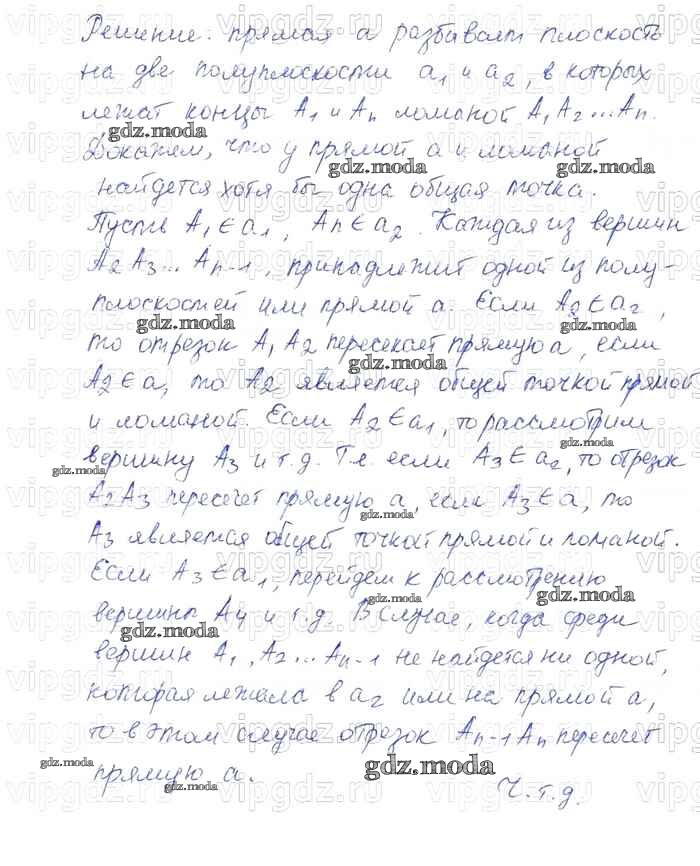 Решение: прямая a разбивает плоскость
на две полуплоскости a₁ и a₂, в которых
лежат концы A₁ и Aₙ ломаной A₁A₂...Aₙ.
Докажем, что у прямой a и ломаной
найдется хотя бы одна общая точка.
Пусть A₁∈a₁, Aₙ∈a₂. Каждая из вершин
A₂A₃... Aₙ₋₁, принадлежит одной из полу-
плоскостей или прямой a. Если A₂∈a₂,
то отрезок A₁A₂ пересекает прямую a, если
A₂∈a, то A₂ является общей точкой прямой
и ломаной. Если A₂∈a₁, то рассмотрим
вершину A₃ и т.д. Т.е. если A₃∈a₂, то отрезок
A₂A₃ пересечет прямую a, если A₃∈a, то
A₃ является общей точкой прямой и ломаной.
Если A₃∈a₁, перейдем к рассмотрению
вершины A₄ и т.д. В случае, когда среди
вершин A₁, A₂... Aₙ₋₁ не найдется ни одной,
которая лежала в a₂ или на прямой a,
то в этом случае отрезок Aₙ₋₁Aₙ пересечет
прямую a.
Ч.т.д.
vipgdz.ru
gdz.moda